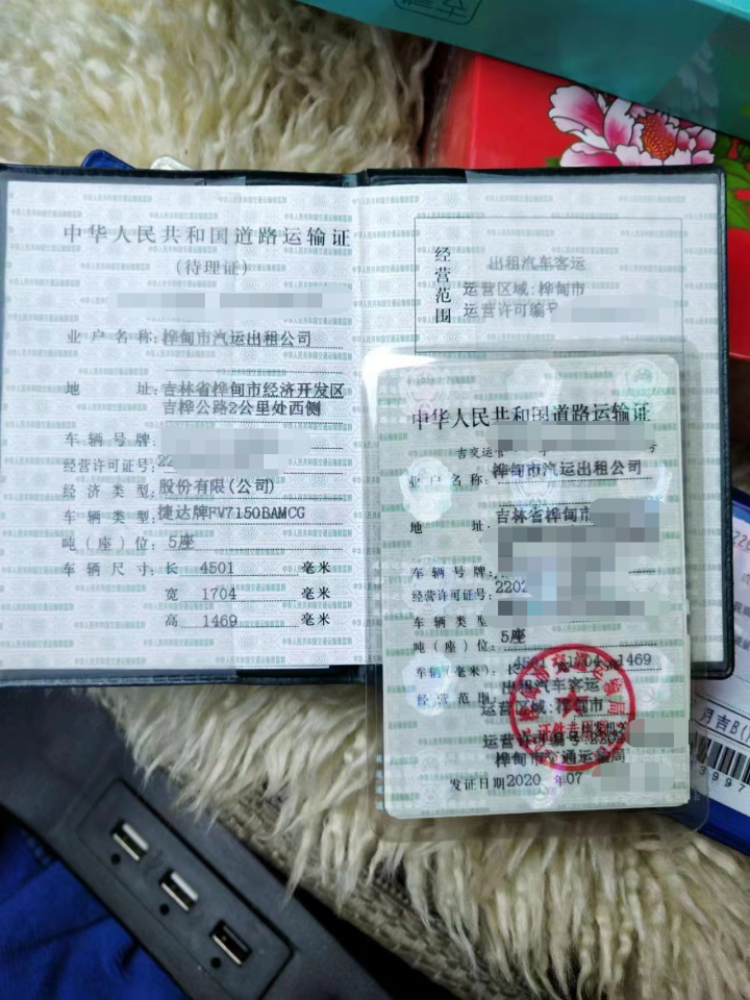 中华人民共和国道路运输证
(待理证)
业户名称:桦甸市汽运出租公司
地址:吉林省桦甸市经济开发区
吉桦公路2公里处西侧
车辆号牌:
经营许可证号:22
经济类型:股份有限(公司)
车辆类型:捷达牌FV7150BAMCG
吨(座)位:5座
车辆尺寸:长 4501 毫米
宽 1704 毫米
高 1469 毫米
经营范围
出租汽车客运
运营区域:桦甸市
运营许可编号
中华人民共和国道路运输证
吉交运管 号
业户名称:桦甸市汽运出租公司
地址:吉林省桦甸市
车辆号牌:
经营许可证号:2202
车辆类型
吨(座)位:5座
车辆(毫米):长4501 1704 1469
经营范围:出租汽车客运
运营区域:桦甸市
运营许可编号:2202
桦甸市交通运输局
发证日期2020 年07
证件专用章
月吉B(
3997